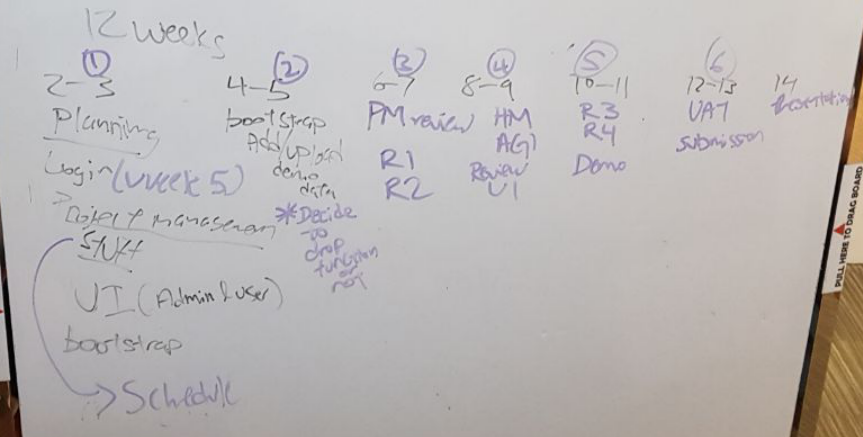 12 weeks
① ② ③ ④ ⑤ ⑥
2-3 4-5 6-7 8-9 10-11 12-13 14
Planning
Login (week 5)
Project management
stuff
UI (Admin & user)
bootstrap
→ Schedule
bootstrap
Add/upload
demo
data
*Decide
to
drop
function
or
not
PM review
R1
R2
HM
AG1
Review
UI
R3
R4
Demo
UAT
submission
Presentation
PULL HERE TO DRAG BOARD